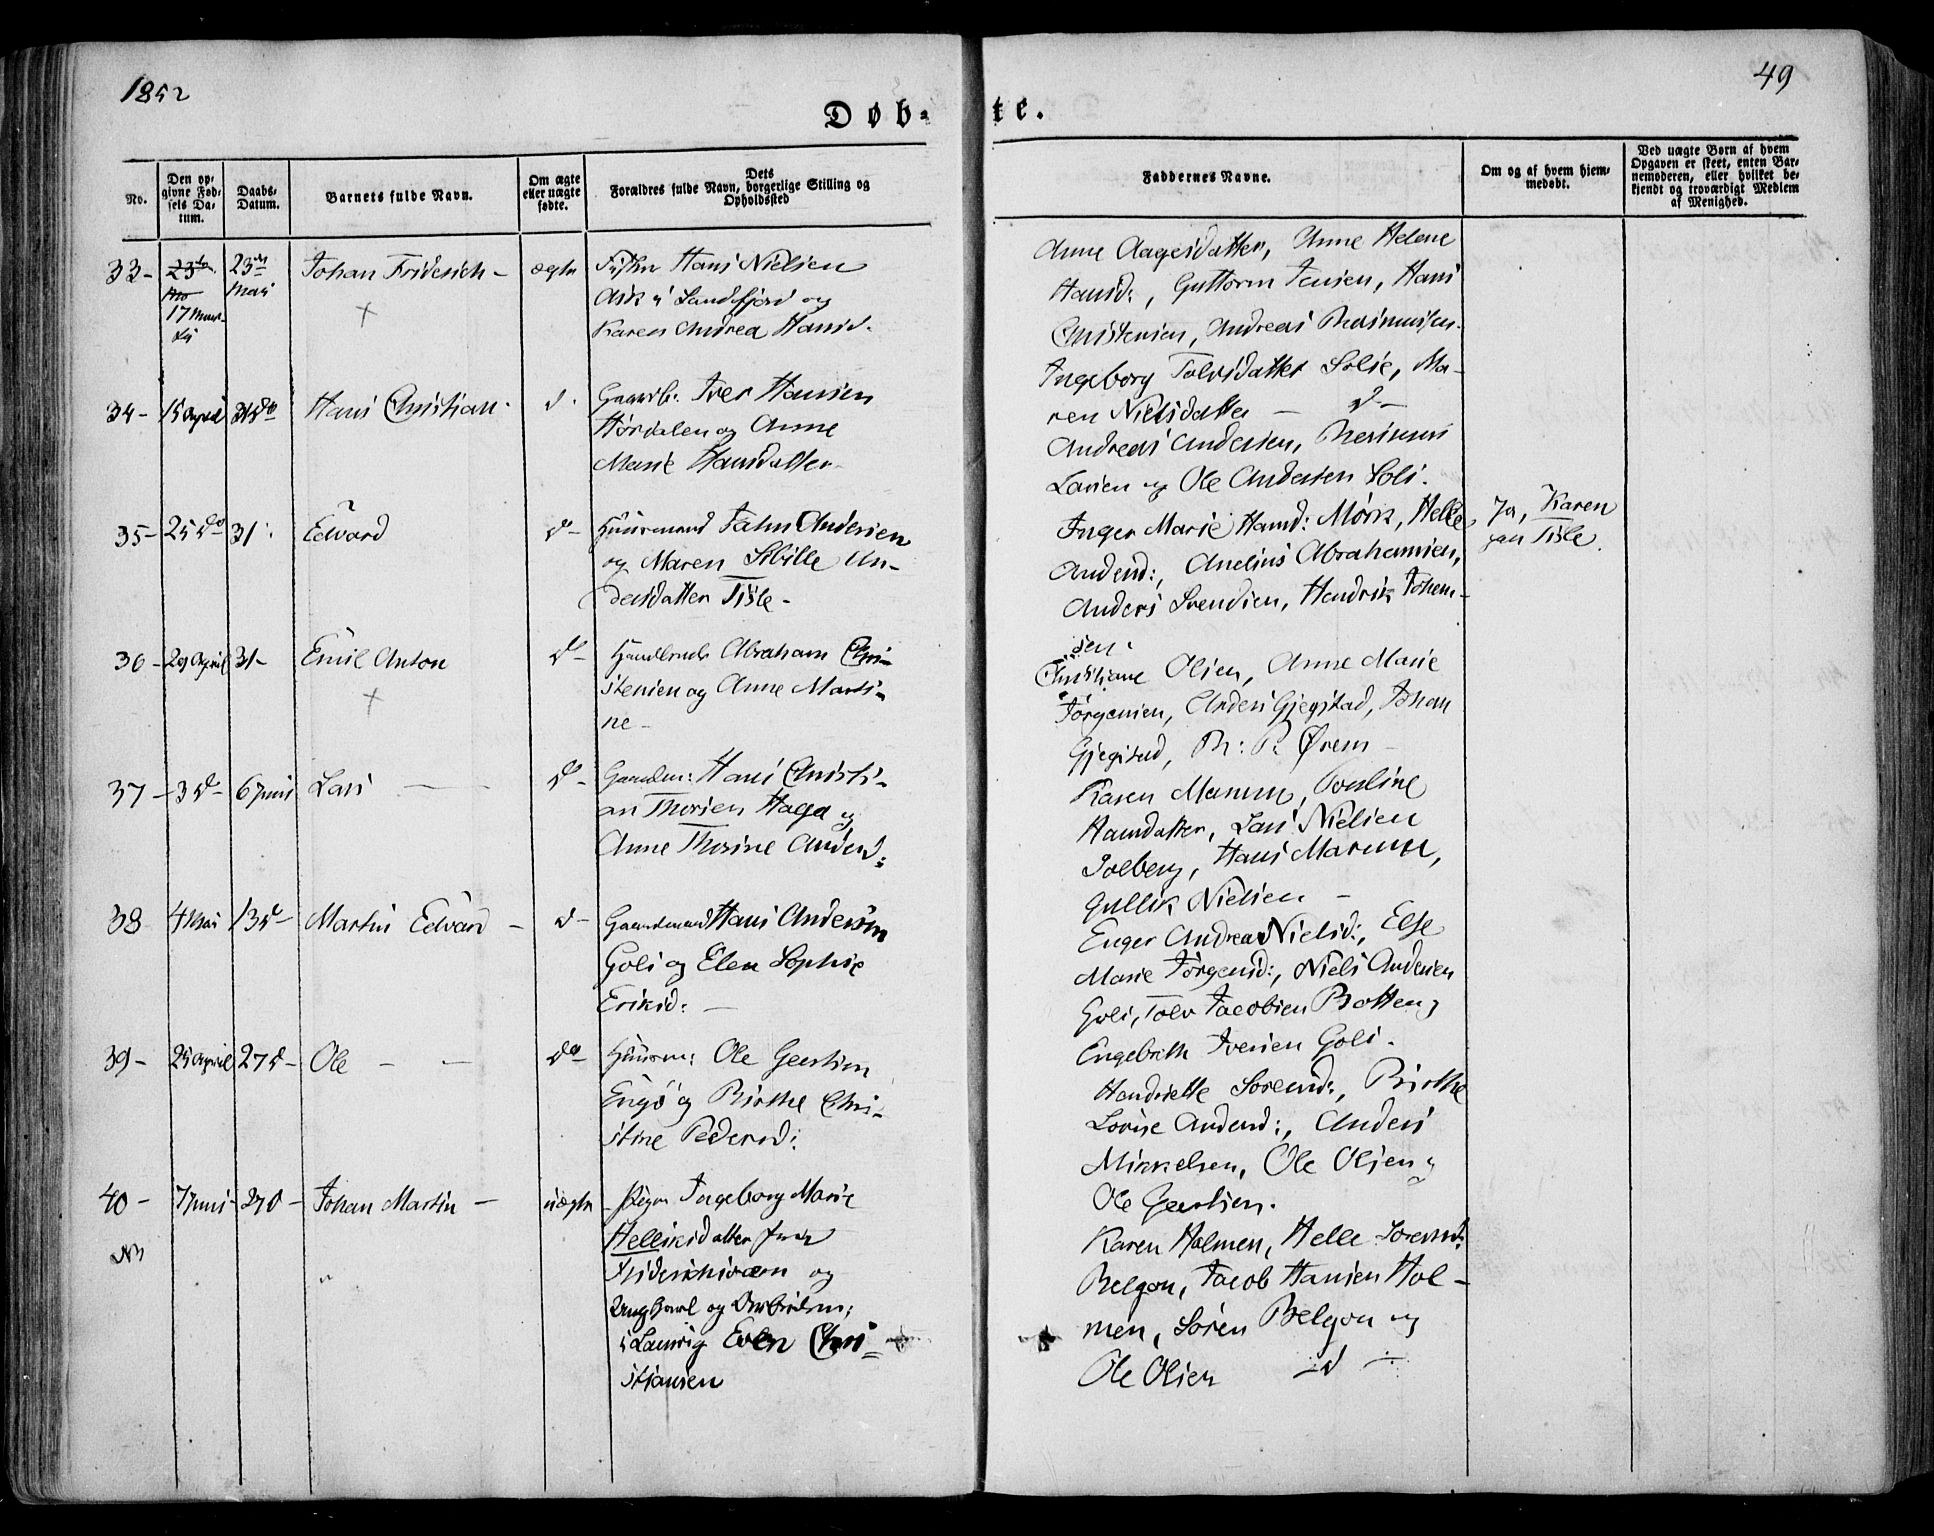 1852
49
Døb-
te.
No.
Den op-
givne Fød-
sels Da-
tum.
Daabs-
Datum.
Barnets fulde Navn.
Om ægte
eller uægte
fødte.
Dets
Forældres fulde Navn, borgerlige Stilling og
Opholdssted
Faddernes Navne.
Om og af hvem hjem-
medøbt.
Ved uægte Børn af hvem
Opgaven er skeet, enten Bar-
nemoderen, eller hvilket be-
kjendt og troværdigt Medlem
af Menighed.
33-
17 Mar-
ts
23de
Mai
Johan Friderich -
ægte
Hans Nielsen
Ask i Sandefjord og
Karen Andrea Hansd.
Anne Aagesdatter, Anne Helene
Hansd:, Guttorm Jensen, Hans
Christensen, Andreas Rasmussen.
34-
15 April
31 do
Hans Christian.
d.
Gaardb: Iver Hansen
Hørdalen og Anne
Marie Hansdatter.
Ingeborg Tolvsdatter Solie, Ma-
ren Nielsdatter - d-
Andreas Andersen, Rasmus
Larsen og Ole Andersen Soli.
35-
25 do
31:
Edvard
do-
Huusmand Jahn Andersen
og Maren Sibille An-
dersdatter Tisle-
Inger Marie Hansd: Mørk, Helle
Andersd:, Anelius Abrahamsen,
Anders Svendsen, Hendrik Johan-
sen.
Ja, Karen
Tisle.
36-
29 April
31-
Emil Anton
do-
Handlende Abraham Chri-
stensen og Anne Marti-
ne-
Christiane Olsen, Anne Marie
Jørgensen, Anders Gjegstad, Johan
Gjegstad, R: R: Ørem-
37-
3 d-
6 Juni
Lars
do-
Gaardm: Hans Christi-
an Thorsen Haga og
Anne Thorine Andersd:
Karen Marum, Pouline
Hansdatter, Lars Nielsen
Solberg, Hans Marum,
Gullik Nielsen-
38
4 Mai
13 d-
Martin Edvard-
d-
Gaardmand Hans Andersen
Goli og Elen Sophie
Eriksd:-
Enger Andrea Nielsd:, Else
Marie Jørgensd:, Niels Andersen
Goli, Tolv Jacobsen Rotten og
Engebrith Iversen Goli.
39-
25 April
27 d-
Ole - -
do-
Huusm: Ole Geertsen
Engø og Birthe Chri-
stine Pedersd:
Hendriette Sorensd:, Birthe
Lovise Andersd:, Anders
Mikkelsen, Ole Olsen og
Ole Geertsen.
40-
7 Juni-
27 d-
Johan Martin-
uægte
Pigen Ingeborg Marie
Helliksdatter fra
Frideriksværn og
Ungkarl og
i Laurvig Even Chri-
stiansen
Karen Holmen, Helle Sorensd:
Relgon, Jacob Hansen Hol-
men, Søren Relgon og
Ole Olsen - d -